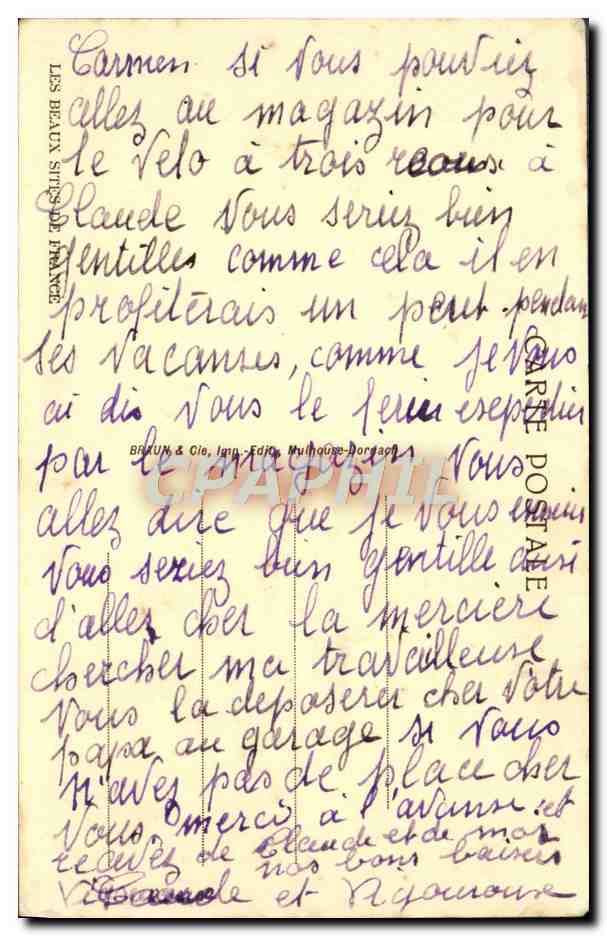 Carmen si vous pouviez
allez au magazin pour
le velo à trois roous à
Claude vous seriez bien
gentilles comme cela il en
profiterais un peut pendant
ses vacanses, comme je vous
ai dis vous le ferier esepedier
par le magazin vous
allez dire que je vous
vous seriez bien gentille ausi
d'allez cher la mercière
chercher ma travailleuse
vous la deposerer cher votre
papa au garage si vous
n'avez pas de place cher
vous. merci à l'avanse et
recevez de Claude et de moi
nos bons baisers
et
LES BEAUX SITES DE FRANCE
CARTE POSTALE
BRAUN & Cie, Imp.-Edit., Mulhouse-Dornach
CPAPHIL